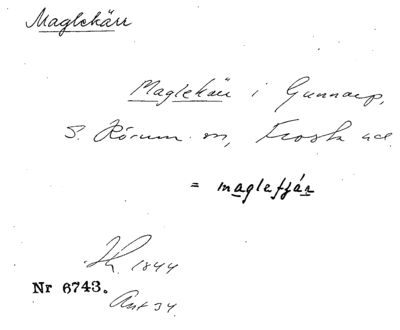 Maglekärr
Maglekärr i Gunnarp,
S. Rörum sn, Frosta hd.
= maglefjár
1844
Nr 6743.
Ant 34